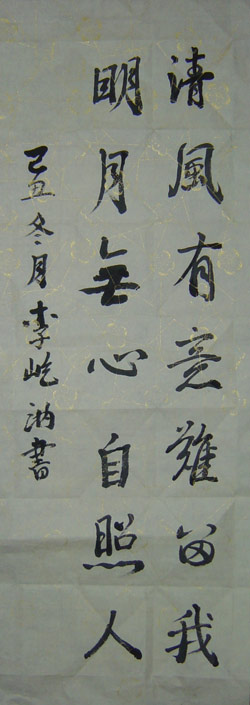 清風有意難留我
明月無心自照人
己丑冬月李屹訥書